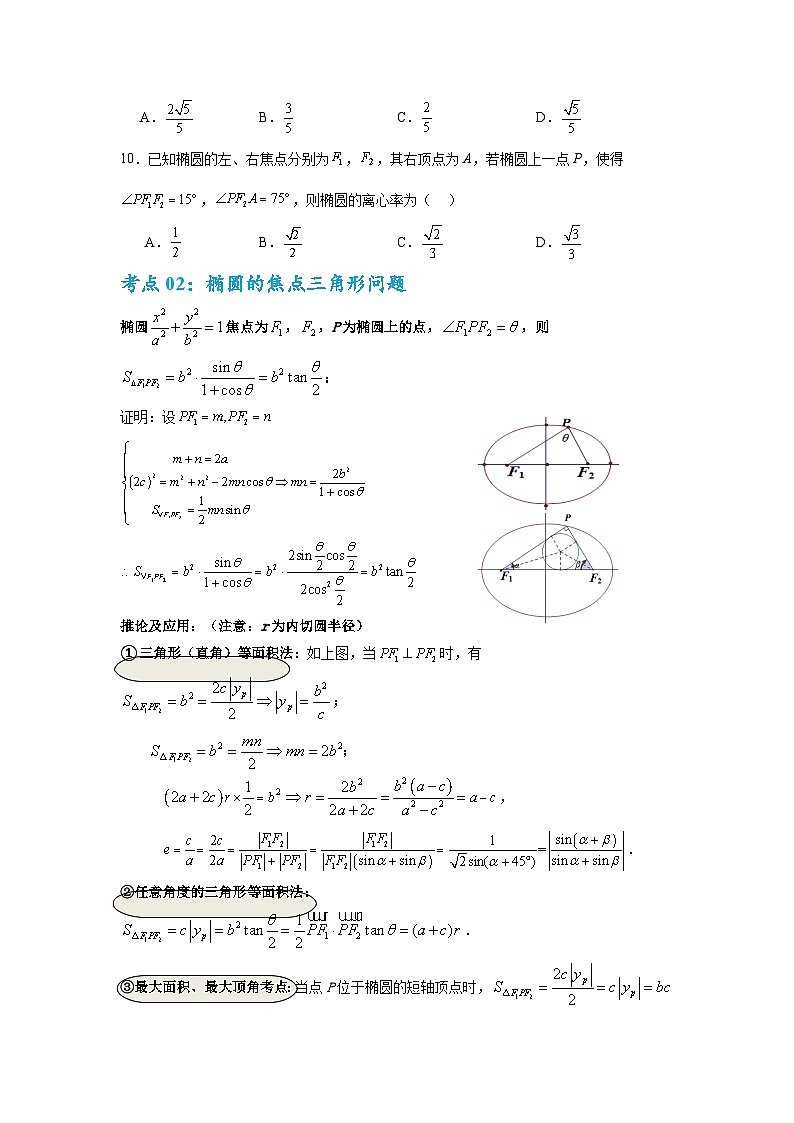 A. 2√5/5 B. 3/5 C. 2/5 D. √5/5
10.已知椭圆的左、右焦点分别为F₁,F₂,其右顶点为A,若椭圆上一点P,使得
∠PF₁F₂=15°,∠PF₂A=75°,则椭圆的离心率为( )
A. 1/2 B. √2/2 C. √2/3 D. √3/3
考点02:椭圆的焦点三角形问题
椭圆x²/a²+y²/b²=1焦点为F₁,F₂,P为椭圆上的点,∠F₁PF₂=θ,则
S△F₁PF₂=b²·sinθ/(1+cosθ)=b²tan θ/2;
证明:设PF₁=m,PF₂=n
m+n=2a
(2c)²=m²+n²-2mncosθ⇒mn=2b²/(1+cosθ)
S▽F₁PF₂=1/2 mnsinθ
P
θ
F₁ F₂
∴S▽F₁PF₂=b²·sinθ/(1+cosθ)=b²·(2sin θ/2 cos θ/2)/(2cos² θ/2)=b²tan θ/2
P
F₁ F₂
推论及应用:(注意:r为内切圆半径)
①三角形(直角)等面积法:如上图,当PF₁⊥PF₂时,有
S△F₁PF₂=b²=2c|yₚ|/2⇒|yₚ|=b²/c;
S△F₁PF₂=b²=mn/2⇒mn=2b²;
(2a+2c)r×1/2=b²⇒r=2b²/(2a+2c)=b²(a-c)/(a²-c²)=a-c,
e=c/a=2c/2a=|F₁F₂|/(|PF₁|+|PF₂|)=|F₁F₂|/(|F₁F₂|(sinα+sinβ))=1/(√2sin(α+45°))=|sin(α+β)/(sinα+sinβ)|.
②任意角度的三角形等面积法:
S△F₁PF₂=c|yₚ|=b²tan θ/2=1/2 PF₁·PF₂tanθ=(a+c)r.
③最大面积、最大顶角考点:当点P位于椭圆的短轴顶点时,S△F₁PF₂=2c|yₚ|/2=c|yₚ|=bc